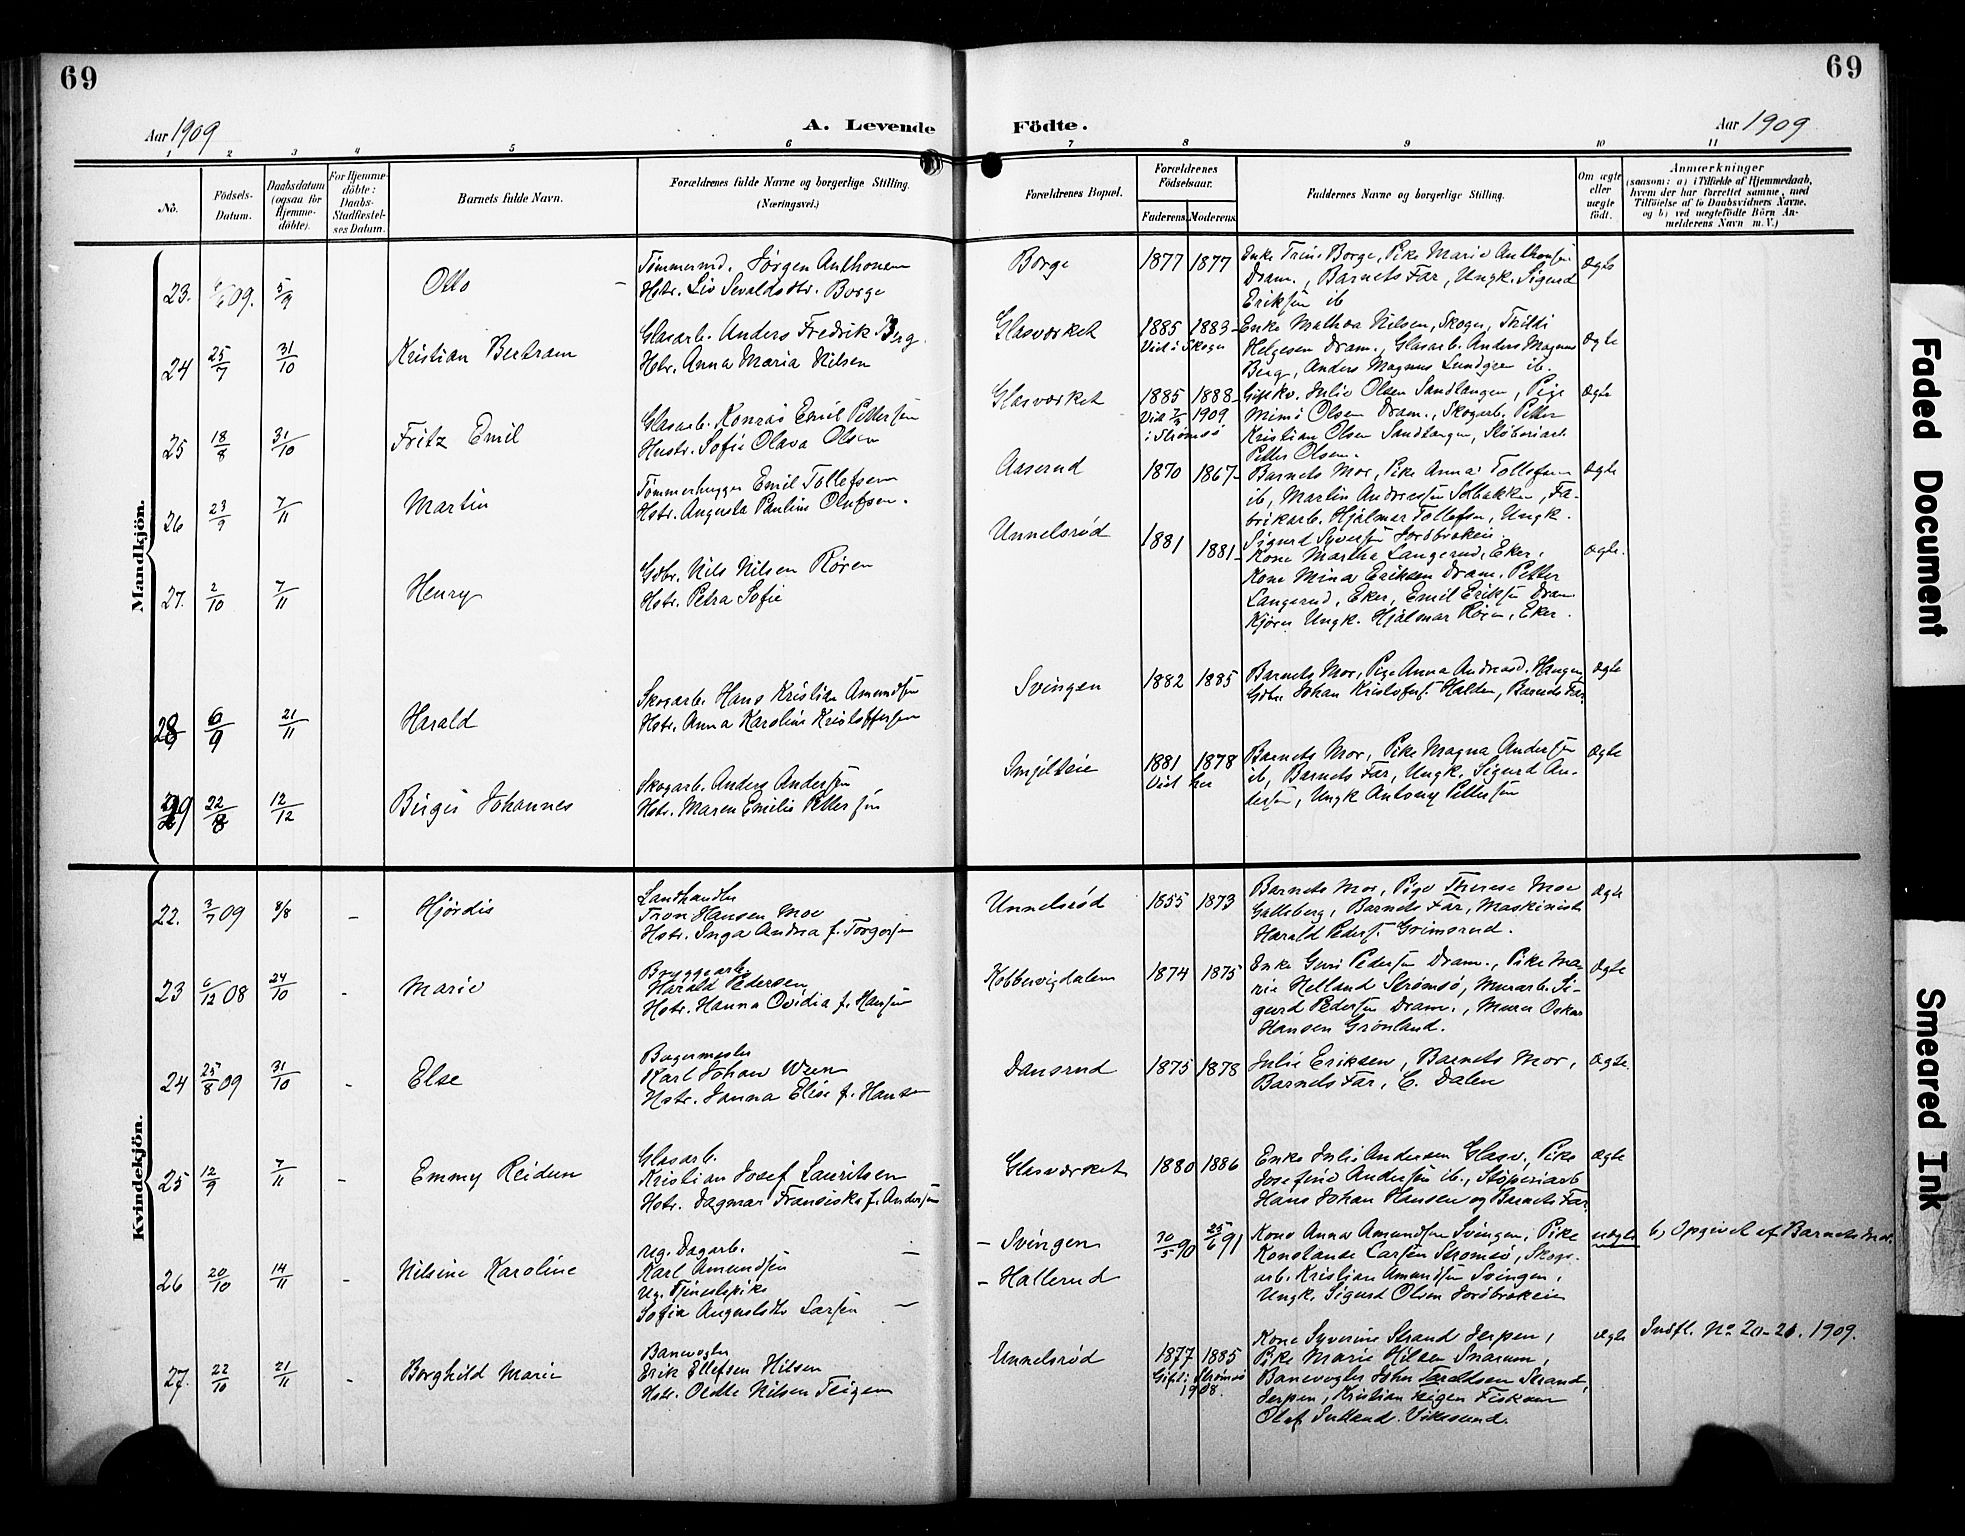 69
69
Aar 1909
A. Levende
Födte.
Aar 1909
1 2 3 4 5 6 7 8 9 10 11
No.
Födsels-Datum.
Daabsdatum (ogsaa for Hjemme-döbte).
For Hjemme-döbte: Daabs-Stadfæstel-ses Datum.
Barnets fulde Navn.
Forældrenes fulde Navne og borgerlige Stilling.
(Næringsvei.)
Forældrenes Bopæl.
Forældrenes Födselsaar.
Faderens. Moderens.
Faddernes Navne og borgerlig Stilling.
Om ægte eller uægte födt.
Anmærkninger
(saasom: a) i Tilfælde af Hjemmedaab,
hvem der har forrettet samme, med
Tilföielse af to Daabsvidners Navne.
og b) ved uegtefödte Börn An-
melderens Navn m. V.)
Mandkjön.
23. 09. 5/9 Otto
Tømmermd. Jørgen Anthonsen
Hstr. Liv Sevaldsdtr. Borge
Borge 1877 1877
Enke Trine Borge, Pike Marie Anthonsen
Dram., Barnets Far, Ungk. Sigurd
Eriksen ib
Ægte
24 25/7 31/10 Kristian Bertram
Glasarb. Anders Fredrik Berg.
Hstr. Anna Maria Nilsen
Glasværket 1885 1883
Viet i Skoger
Enke Mathea Nilsen, Skoger, Thilda
Helgesen Dram., Glasarb. Anders Magnus
Berg, Anders Magnus Lundgren ib.
Ægte
25 18/8 31/10 Fritz Emil
Glasarb. Konrad Emil Pettersen
Hustr. Sofie Olava Olsen
Glasværket 1885 1888
Viet 1909
i Strømsø
Gift kv. Julie Olsen Sandtangen, Pige
Mimi Olsen Dram., Skogarb. Petter
Kristian Olsen Sandtangen, Støberiarb.
Petter Olsen.
Ægte
26 23/9 7/11 Martin
Tømmerhugger Emil Tollefsen
Hstr. Augusta Pauline Olufsen.
Aaserud 1870 1867
Barnets Mor, Pike Anna Tollefsen
ib, Martin Andersen Solbakken, Fa-
brikarb. Hjalmar Tollefsen, Ungk.
Sigurd Syversen Jordbrækeie
Ægte
27. 2/10 7/11 Henry
Gdbr. Nils Nilsen Røren
Hstr. Petra Sofie
Unnelsrød 1881 1881
Kone Martha Langerud, Eker,
Kone Mina Eriksen Dram. Petter
Langerud, Eker, Emil Eriksen Dram
Kjører Ungk. Hjalmar Røren, Eker.
Ægte.
28 6/9 21/11 Harald
Skogarb. Hans Kristian Amundsen
Hstr. Anna Karoline Kristoffersen
Svingen 1882 1885
Barnets Mor, Pige Anna Andreasd. Haugen
Gdbr. Johan Kristofers. Halden, Barnets Far.
Ægte
29 22/8 12/12 Birger Johannes
Skogarb. Anders Andersen
Hstr. Maren Emilie Pettersen
1881 1878
Viet her
Barnets Mor, Pike Magna Andersen
ib, Barnets Far, Ungk. Sigurd An-
dersen, Ungk Antony Pettersen
Ægte
Kvindekjön.
22. 3/7 09 8/8 - Hjördis
Landhandler
Tron Hansen Moe
Hstr. Inga Andrea f. Torgersen
Unnelsrød 1855 1873
Barnets Mor, Pige Therese Moe
Galteberg, Barnets Far, Maskinist
Harald Peders. Grimsrud.
Ægte
23 6/12 08 24/10 - Marie
Bryggearb.
Harald Pedersen
Hstr. Hanna Ovidia f. Hansen
Kobbervigdalen 1874 1875
Enke Guri Pedersen Dram., Pike Ma-
rie Helland Strømsø, Murarb. Si-
gurd Pedersen Dram., Murer Oskar
Hansen Grønland.
Ægte
24 25/8 09 31/10 - Else
Bagermester
Karl Johan Wren
Hstr. Janna Elise f. Hansen
Dansrud 1875 1878
Julie Eriksen, Barnets Mor,
Barnets Far, C. Dalen
Ægte.
25 12/9 7/11 - Emmy Reidun
Glasarb.
Kristian Josef Lauritsen
Hstr. Dagmar Fransiska f. Andersen
Glasværket 1880 1886
Enke Julie Andersen Glasv, Pike
Josefine Andersen ib., Støperiarb
Hans Johan Hansen og Barnets Far.
Ægte
26 20/10 14/11 - Nilsine Karoline
Ug. Dagarb.
Karl Amundsen
Ug. Tjenestepike
Sofia Augustdtr Larsen
- Svingen
- Hallerud
30/5 90 25/6 91
Kone Anna Amundsen Svingen, Pike
Konstanse Larsen Strømsø, Skogs-
arb. Kristian Amundsen Svingen,
Ungk. Sigurd Olsen Jordbrækeie
uægte
b, Opgivet af Barnets Mor.
27. 22/10 21/11 - Borghild Marie
Banevogter
Erik Ellefsen Hilsen
Hstr. Olette Nilsen Teigen
Unnelsrød 1877 1885
Gift i Strømsø
1908.
Kone Syverine Strand Jerpen,
Pike Marie Hilsen Snarum,
Banevogter John Taraldsen Strand,
Jerpen, Kristian Teigen Fiskum
Olaf Juteland. Vikesund.
Ægte
Indfl. No 20-21. 1909.
Faded Document
Smeared Ink